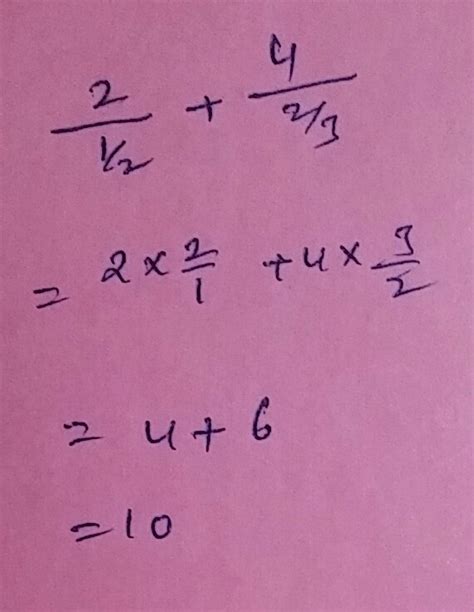 2/(1/2) + 4/(2/3)
= 2 × 2/1 + 4 × 3/2
= 4 + 6
= 10